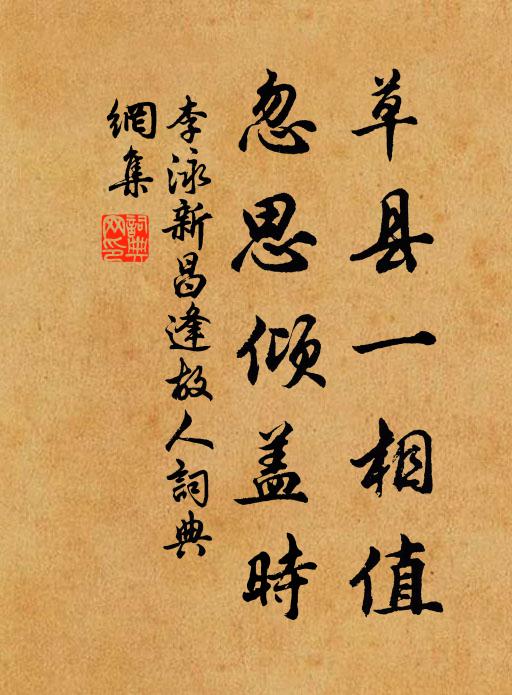 草县一相值
忽思倾盖時
李泳新昌逢故人詞典
網集
詞典
网印